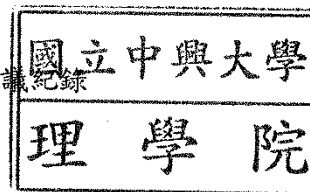 國立中興大學
議紀錄
理學院